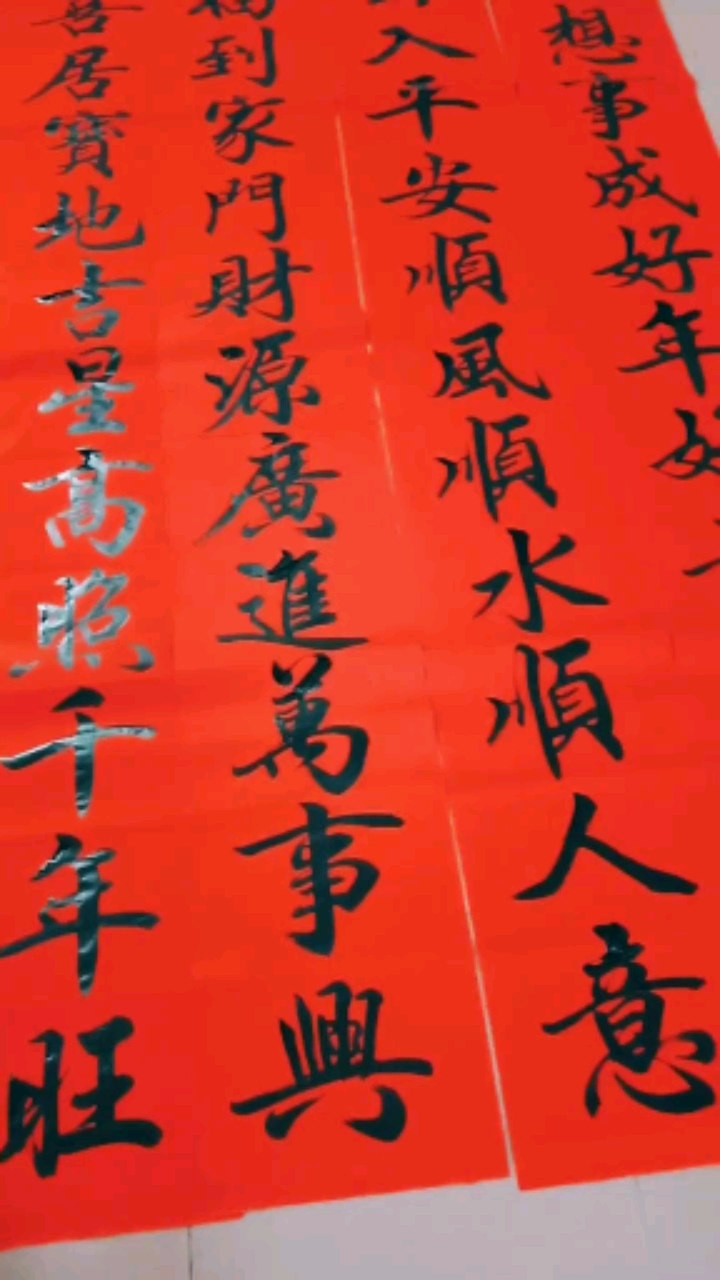 想事成好年好
入平安順風順水順人意
福到家門財源廣進萬事興
喜居寶地吉星高照千年旺